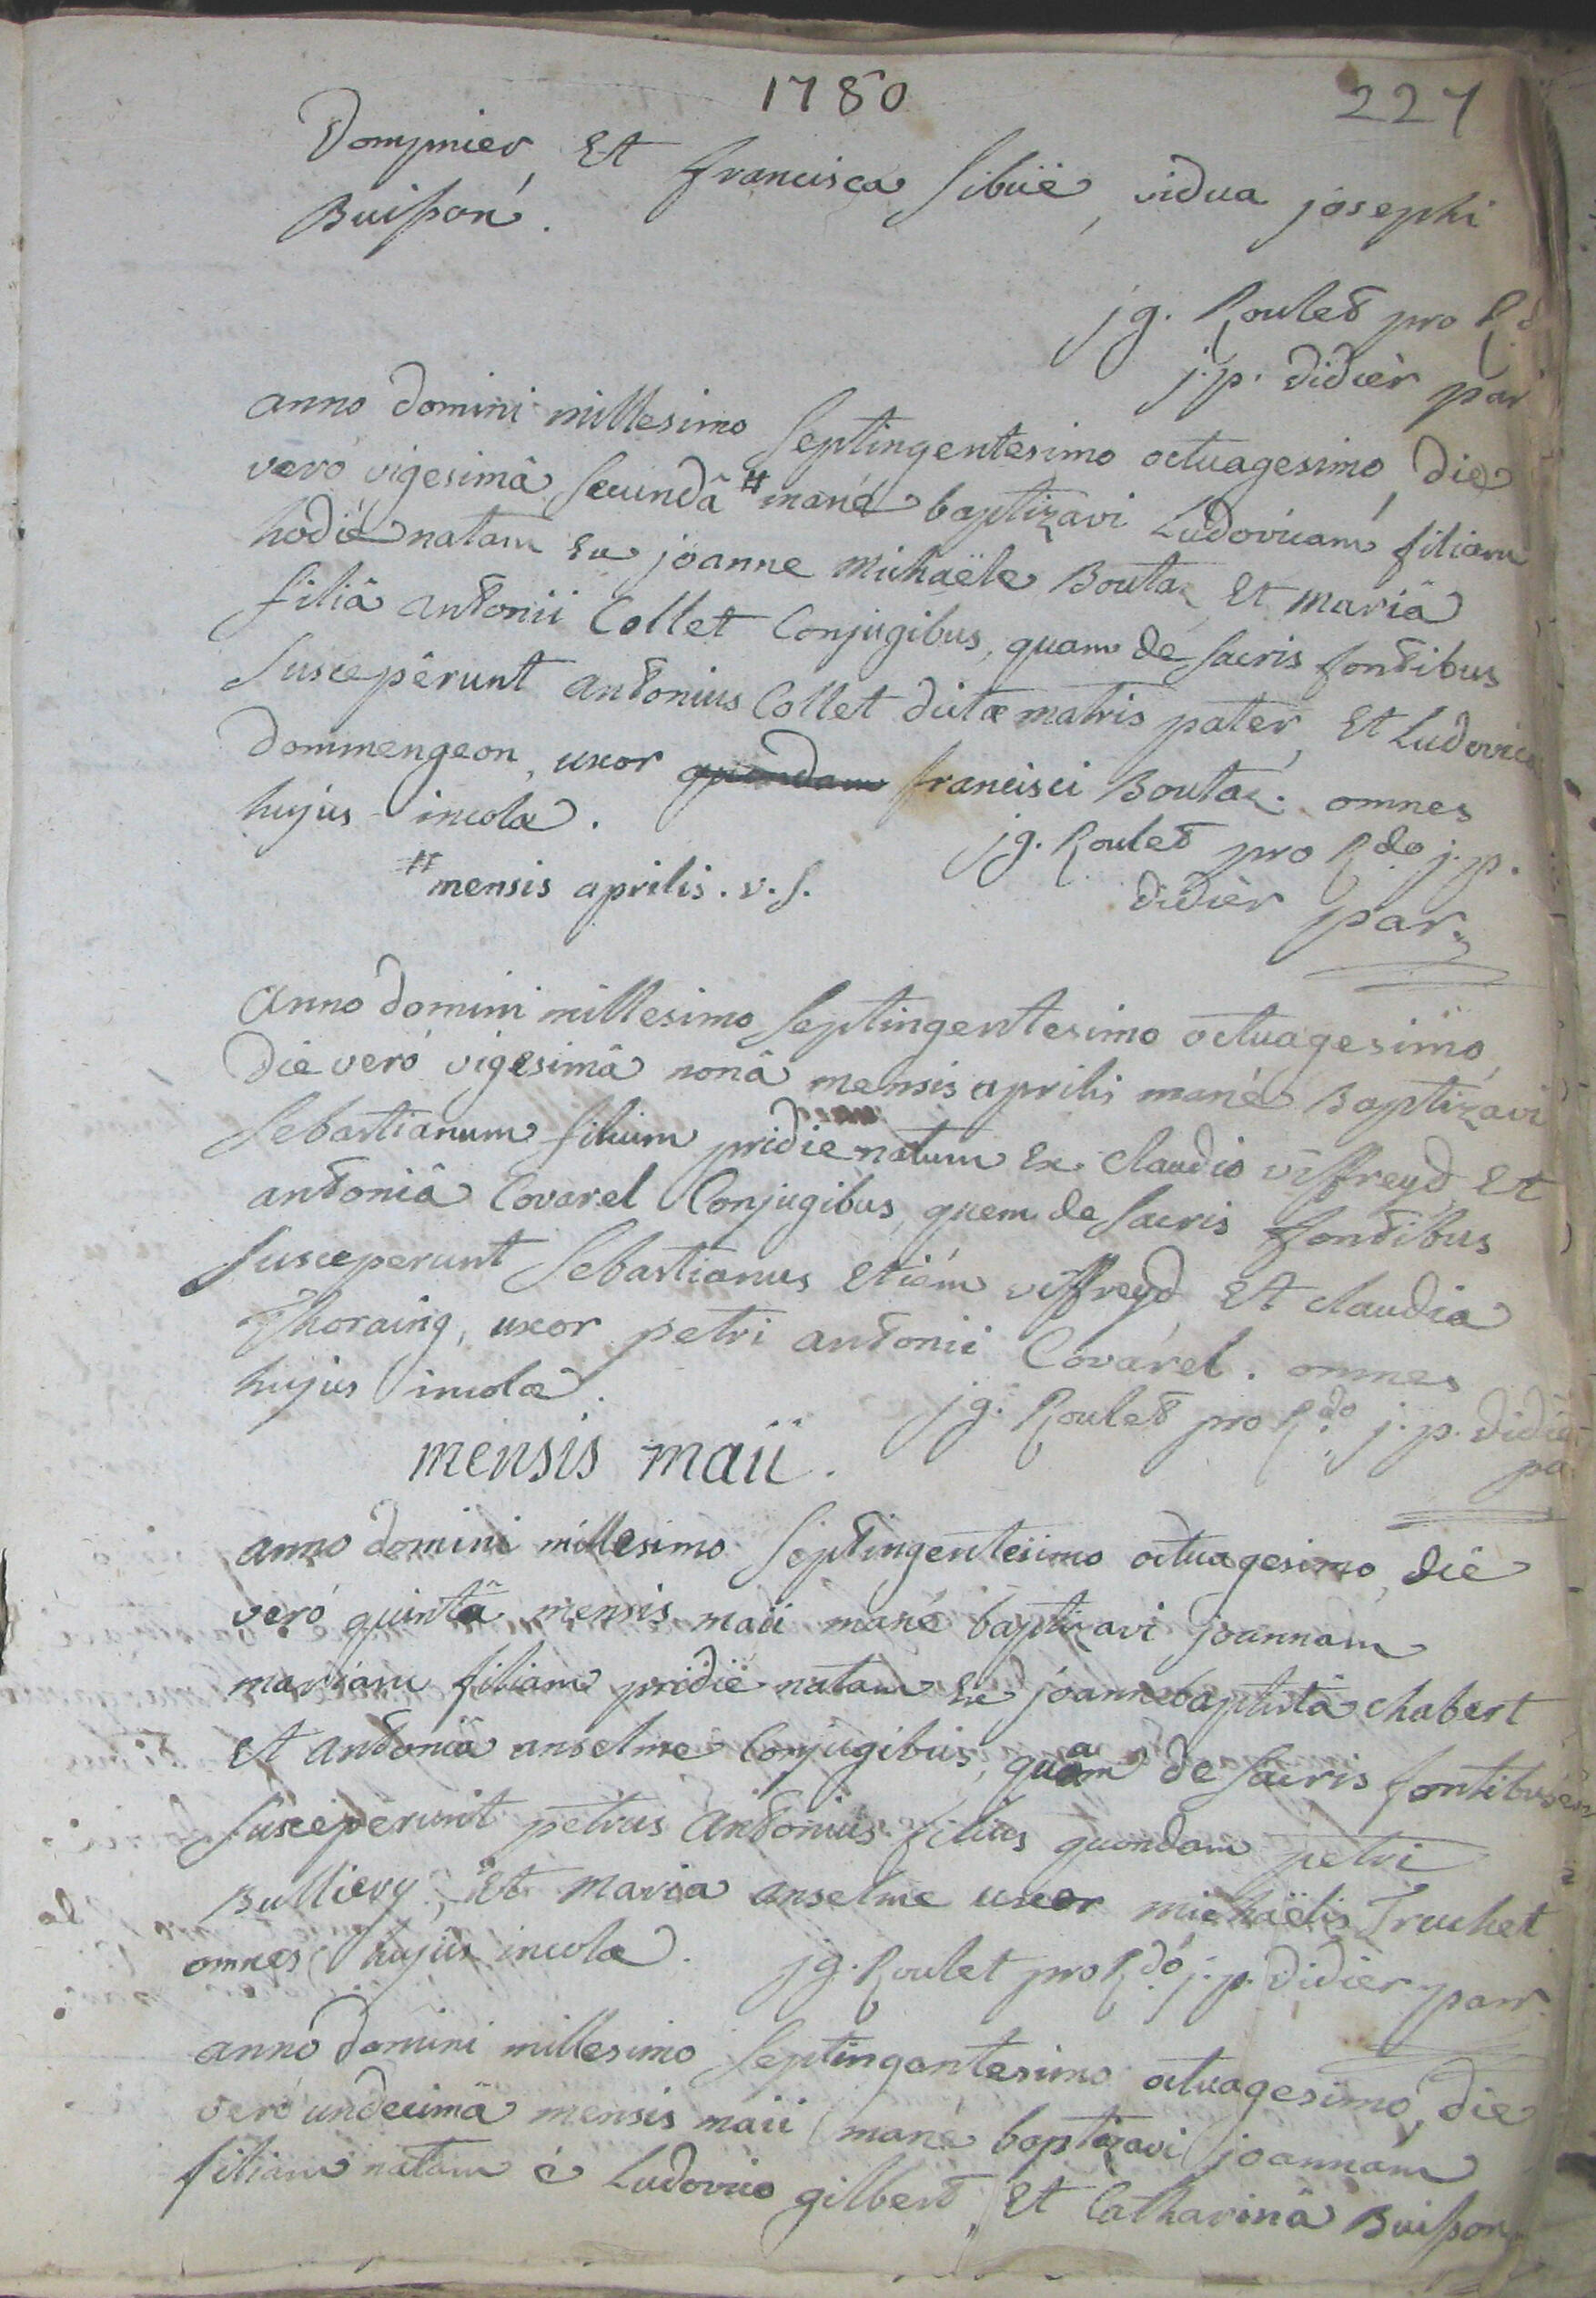 1780
227
Dompnier, Et francisca Sibüë, vidua josephi
Buisson.
jg. Roulet pro Rd
j.p. didièr par
anno domini millesimo Septingentesimo octuagesimo, die
vero vigesimâ Secundâ # manè baptizavi Ludovicam filiam
hodiè natam Ex joanne Michaële Boutaz Et Mariâ
filiâ antonii Collet Conjugibus, quam de Sacris fontibus
Suscepêrunt antonius Collet dictæ matris pater, Et Ludovica
Dommengeon, uxor quondam francisci Boutaz. omnes
hujus incolæ.
jg. Roulet pro Rdo j.p.
# mensis aprilis. v. s.
didièr par.
anno domini millesimo Septingentesimo octuagesimo,
die verò vigesimâ nonâ mensis aprilis manè Baptizavi
Sebastianum filium pridie natum Ex claudio viffreyd, Et
antoniâ Covarel Conjugibus, quem de Sacris fontibus
Susceperunt Sebastianus Etiem viffreyd, Et claudia
Thoraing, uxor petri antonii Covarel. omnes
hujus incolæ.
jg. Roulet pro Rdo j.p. didiè
pa
mensis maii.
anno domini millesimo Septingentesimo octuagesimo, die
verò quintâ mensis maii manè baptizavi joannam
mariam filiam pridiè natam Ex joanne baptistâ chabert
Et antoniâ anselme Conjugibus, quam de Sacris fontibus
Susceperunt petrus antonius filius quondam petri
Bulliery, Et Maria anselme uxor michaëlis Truchet
omnes hujus incolæ.
jg. Roulet pro Rdo j.p. didier parr.
anno domini millesimo Septingentesimo octuagesimo, die
verò undecimâ mensis maii manè baptizavi joannam
filiam natam è Ludovico gilbert, Et Catharinâ Buisson